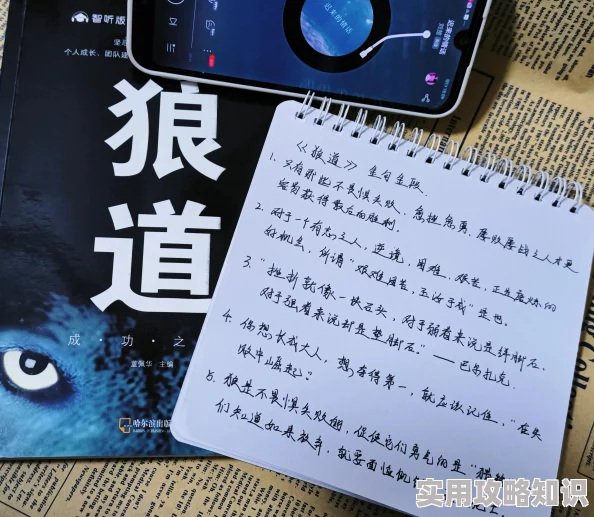 智听版
个人成长、团队建
狼
道
成·功·之
董佩华 主编
哈尔滨出版
迟来的情话
《狼道》金句金段.
1. 只有那些不畏惧失败、愈挫愈勇、屡败屡战之人才更
容易获得最后的胜利.
2. 对于一个有志之人,逆境、困难、艰苦,正是磨炼的
好机会,所谓"艰难困苦,玉汝于成"是也.
3. "挫折就像一块石头,对于弱者来说是绊脚石.
对于强者来说却是垫脚石."——巴尔扎克.
4. 你想长成大人,想夺得第一,就应该记住,"在失
败中崛起."
5. 狼是不畏惧失败的,促使它们勇气的是"猎
们知道如果放弃,就要面临饥
实用攻略知识